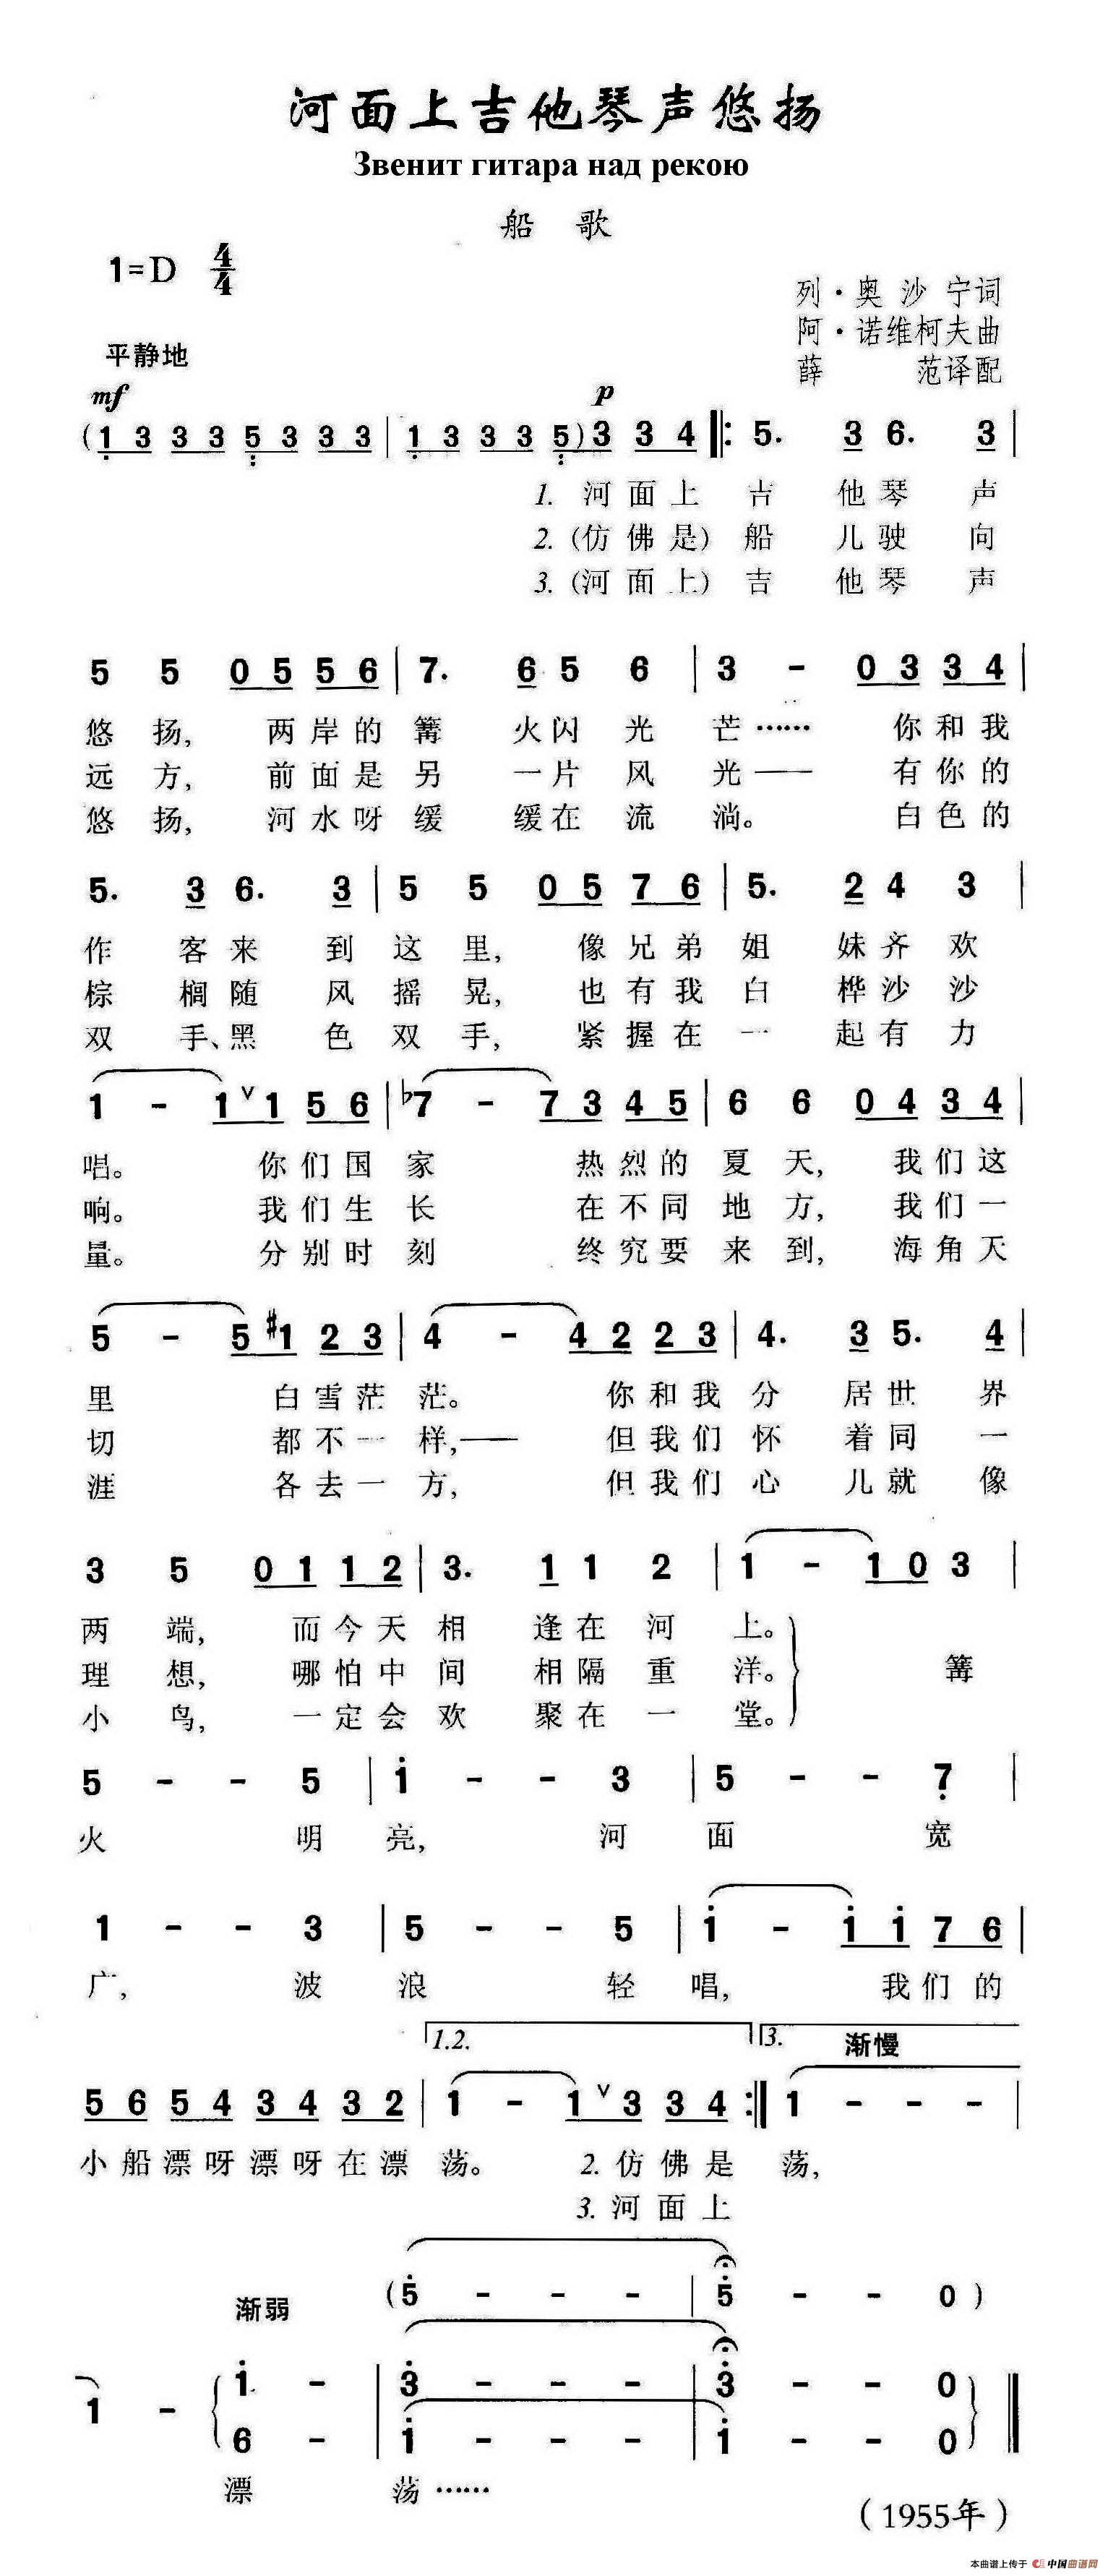 河面上吉他琴声悠扬
Звенит гитара над рекою
船 歌
1=D 4/4
列·奥沙宁词
阿·诺维柯夫曲
薛 范译配
平静地
mf p
(1 3 3 3 5 3 3 3 | 1 3 3 3 5) 3 3 4 |: 5. 3 6. 3 |
1. 河面上 吉 他琴 声
2. (仿佛是) 船 儿驶 向
3. (河面上) 吉 他琴 声
5 5 0 5 5 6 | 7. 6 5 6 | 3 - 0 3 3 4 |
悠 扬, 两岸的 篝 火闪 光 芒…… 你和我
远 方, 前面是 另 一片 风 光—— 有你的
悠 扬, 河水呀 缓 缓在 流 淌。 白色的
5. 3 6. 3 | 5 5 0 5 7 6 | 5. 2 4 3 |
作 客来 到 这 里, 像兄弟 姐 妹齐 欢
棕 榈随 风 摇 晃, 也有我 白 桦沙 沙
双 手、黑 色 双 手, 紧握在 一 起有 力
1 - 1 ∨ 1 5 6 | ♭7 - 7 3 4 5 | 6 6 0 4 3 4 |
唱。 你们国 家 热烈的 夏 天, 我们这
响。 我们生 长 在不同 地 方, 我们一
量。 分别时 刻 终究要 来 到, 海角天
5 - 5 #1 2 3 | 4 - 4 2 2 3 | 4. 3 5. 4 |
里 白雪茫 茫。 你和我 分 居世 界
切 都不一 样,—— 但我们 怀 着同 一
涯 各去一 方, 但我们 心 儿就 像
3 5 0 1 1 2 | 3. 1 1 2 | 1 - 1 0 3 |
两 端, 而今天 相 逢在 河 上。
理 想, 哪怕中 间 相隔 重 洋。 篝
小 鸟, 一定会 欢 聚在 一 堂。
5 - - 5 | i - - 3 | 5 - - 7 |
火 明 亮, 河 面 宽
1 - - 3 | 5 - - 5 | i - i i 7 6 |
广, 波 浪 轻 唱, 我们的
1.2. 3. 渐慢
5 6 5 4 3 4 3 2 | 1 - 1 ∨ 3 3 4 :| 1 - - - |
小船漂呀漂呀在漂 荡。 2. 仿佛是 荡,
3. 河面上
渐弱 (5 - - - | 5 - - 0 )
i - | 3 - - - | 3 - - 0
1 -
6 - | i - - - | i - - 0
漂 荡……
(1955年)
本曲谱上传于 中国曲谱网